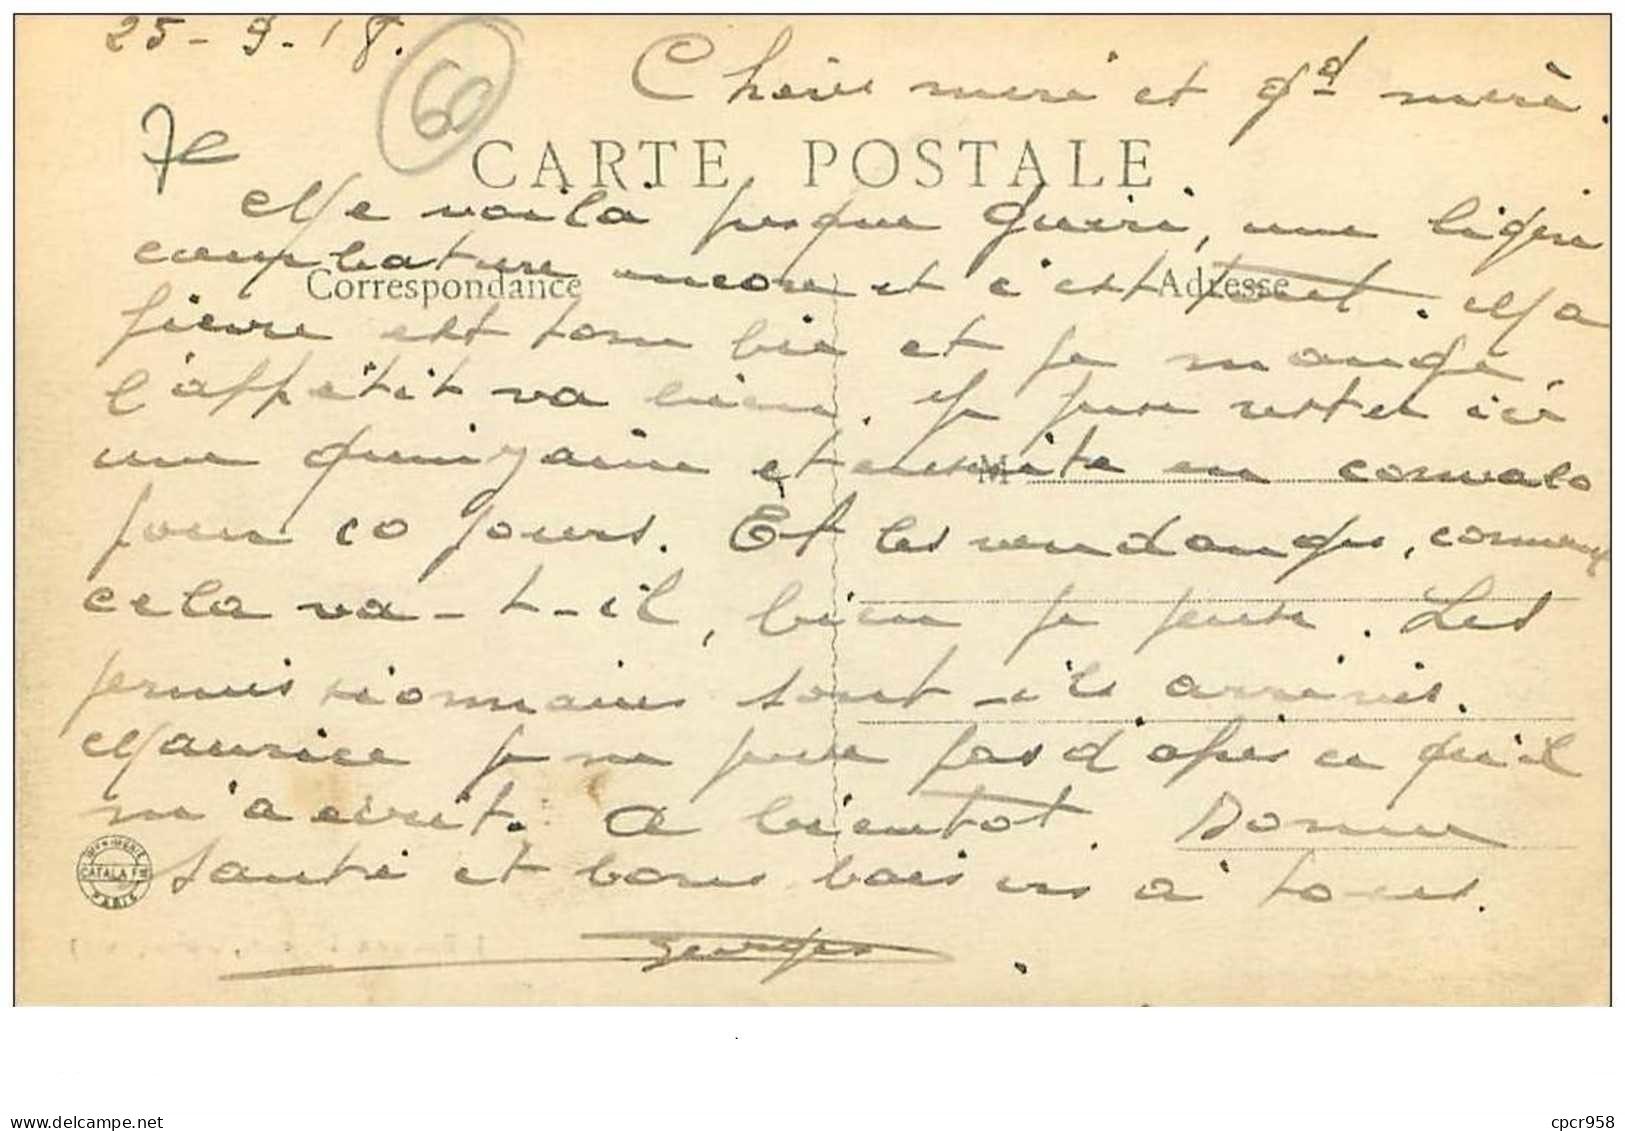 25-9-18.
60
Chère mère et gd mère.
CARTE POSTALE
Me voilà presque guéri, une légère
courbature encore et c'est tout. Ma
Correspondance
Adresse
fièvre est tombée et je mange,
l'appétit va bien. Je puis rester ici
une quinzaine et ensuite en convalo
M
pour 20 jours. Et les vendanges, comment
cela va-t-il, bien je pense. Les
permissionnaires sont-ils arrivés.
Maurice je ne pense pas d'après ce qu'il
m'a écrit. A bientôt. Bonne
santé et bons baisers à tous.
IMPRIMERIE
CATALA FRES
PARIS
Georges
delcampe.net
cpcr958